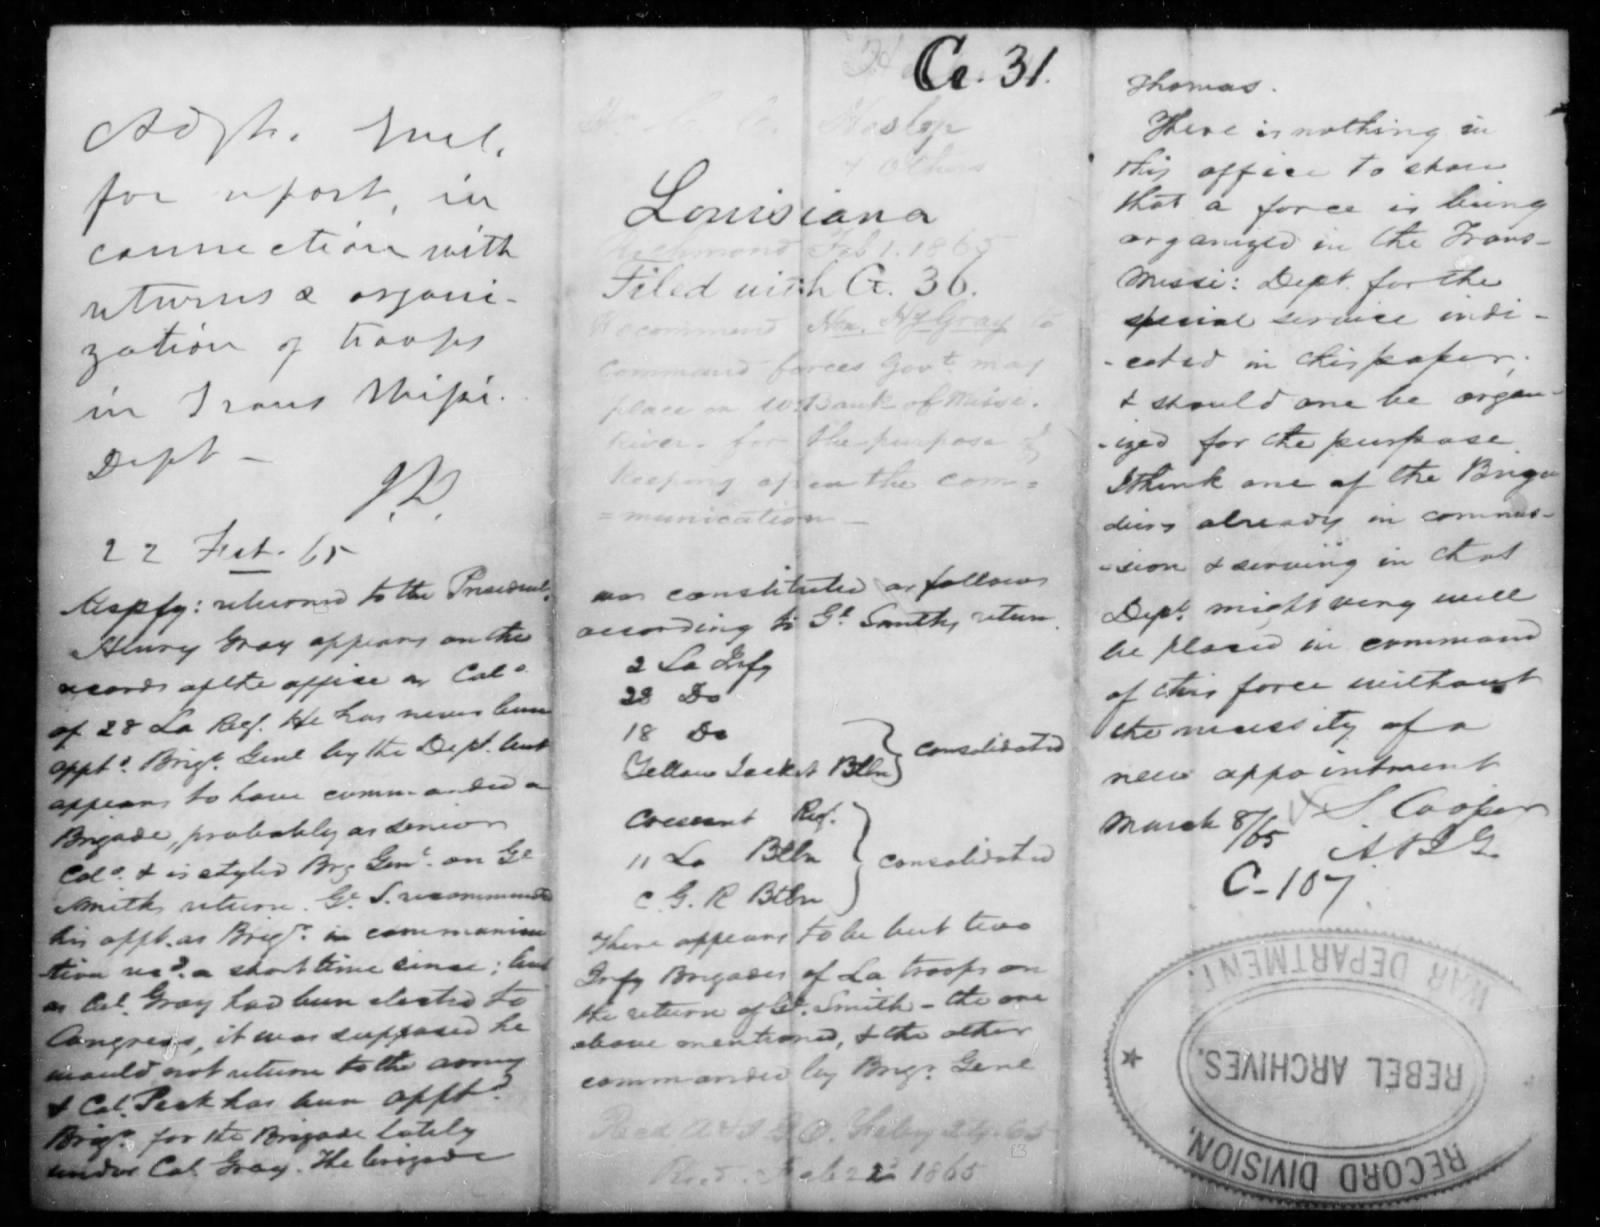 Adjt. Genl.
for report, in
connection with
returns & organi-
zation of troops
in Trans Missi.
Dept -
J.D.
22 Feb. 65
Respfy: returned to the President.
Henry Gray appears on the
records of the office as Col.
of 28 La Regt. He has never been
appt.d Brigr. Genl by the Dept. but
appears to have commanded a
Brigade, probably as senior
Col. & is styled Brig Genl. on Gl
Smith's return. Gl. S. recommended
his appt. as Brigr. in communica
-tion recd. a short time since; but
as Col. Gray had been elected to
Congress, it was supposed he
would not return to the army
& Col. Peck has been apptd.
Brigr. for the Brigade lately
under Col Gray. The brigade
G. 31.
Haslip
& others
Louisiana
Richmond Feb 1. 1865
Filed with G. 36.
Recommend Hon. Hy Gray to
command forces Govt. may
place on W. Bank of Missi.
River. for the purpose of
keeping open the com=
=munication -
was constituted as follows
according to Gl. Smith's return.
2 La Infy
28 Do
18 Do
Yellow Jacket Btln } consolidated
Crescent Regt.
11 La Btln } consolidated
C. G. R Btln
There appears to be but two
Infy Brigades of La troops on
the return of Gl. Smith - the one
above mentioned, & the other
commanded by Brigr. Genl
Recd A & I G O. Feby 24. 65
Recd. Feb 22 1865
Thomas.
There is nothing in
this office to show
that a force is being
organized in the Trans-
Missi: Dept. for the
special service indi-
-cated in this paper;
& should one be organ-
-ized for the purpose
I think one of the Briga
diers already in commis-
-sion & serving in that
Dept. might very well
be placed in command
of this force without
the necessity of a
new appointment
March 8/65 S Cooper
A & I G
C-107
WAR DEPARTMENT.
REBEL ARCHIVES.
RECORD DIVISION.